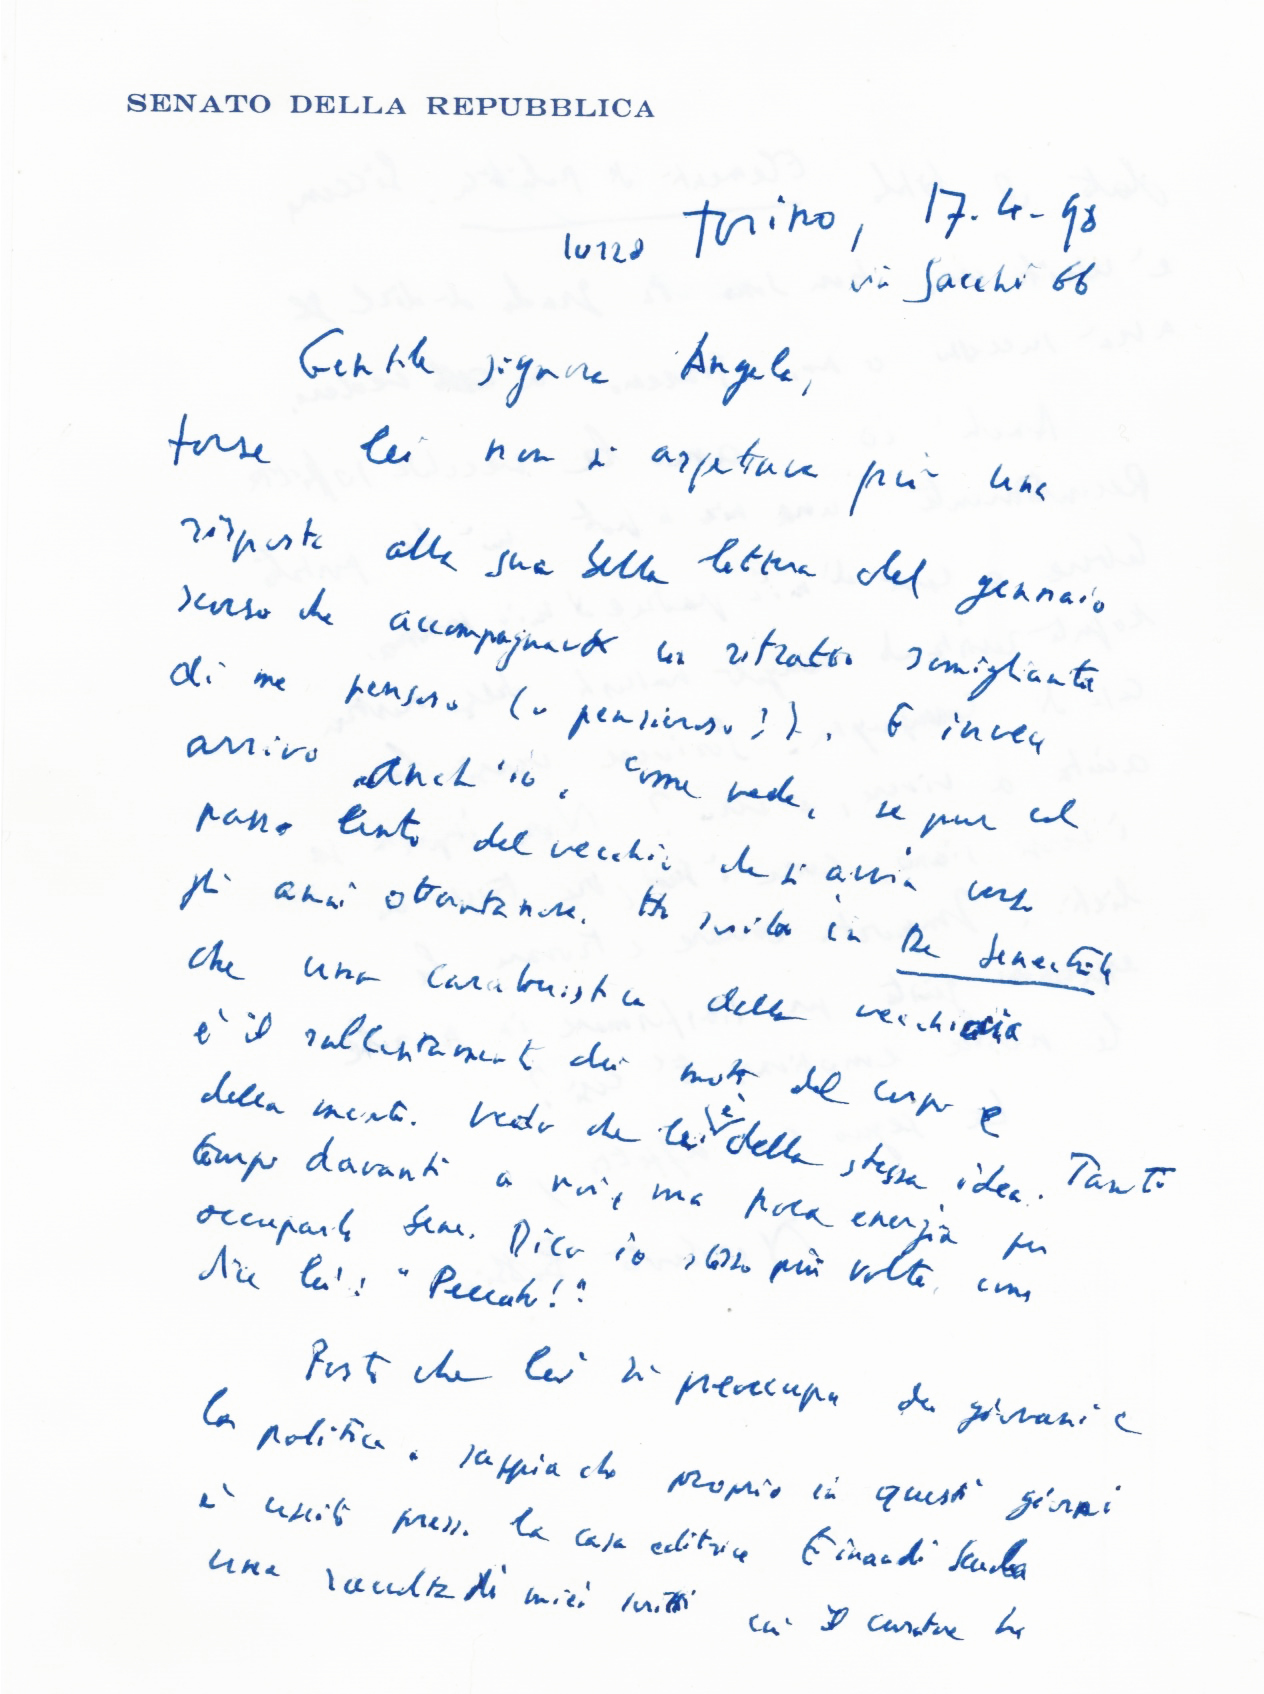 SENATO DELLA REPUBBLICA
Torino, 17.4.98
10128 via Sacchi 66
Gentile signora Angela,
forse lei non si aspettava più una
risposta alla sua bella lettera del gennaio
scorso che accompagnava un ritratto somigliante
di me pensoso (o pensieroso?). E invece
arrivo anch'io, come vede, se pur col
passo lento del vecchio che si avvia verso
gli anni ottantanove. Ho scritto in De Senectute
che una caratteristica della vecchiaia
è il rallentamento dei moti del corpo e
della mente. Vedo che lei è della stessa idea. Tanto
tempo davanti a noi, ma poca energia per
occuparlo bene. Dico io stesso più volte, come
dice lei: "Peccato!"
Posto che lei si preoccupa dei giovani e
la politica, sappia che proprio in questi giorni
è uscito presso la casa editrice Einaudi Scuola
una raccolta di miei scritti cui il curatore ha